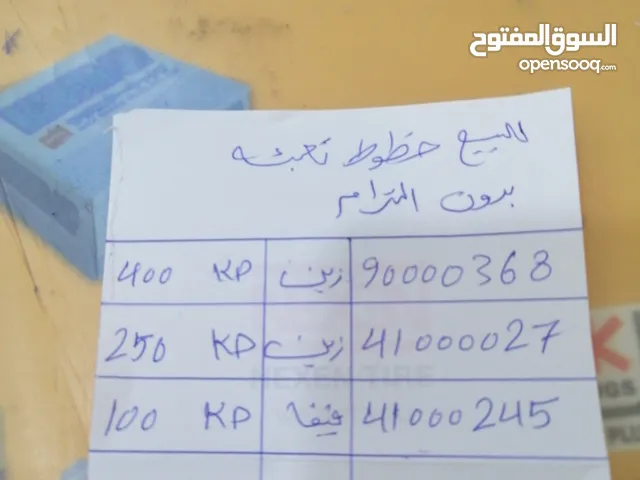 السوق المفتوح
opensooq.com
للبيع خطوط تعبئه
بدون التزام
90000368 زين KD 400
41000027 زين KD 250
41000245 فيفا KD 100
NEXEN TIRE